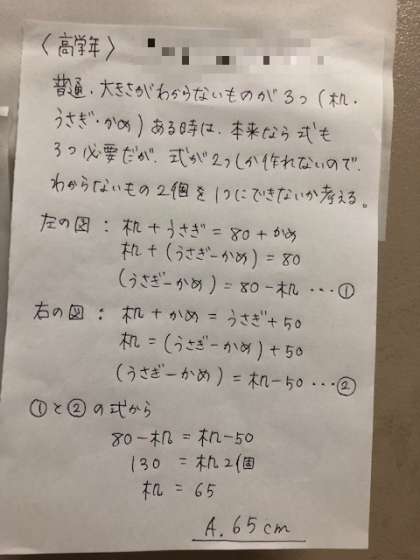 〈高学年〉
普通、大きさがわからないものが3つ(机・
うさぎ・かめ)ある時は、本来なら式も
3つ必要だが、式が2つしか作れないので、
わからないもの2個を1つにできないか考える。
左の図：机+うさぎ=80+かめ
机+(うさぎ-かめ)=80
(うさぎ-かめ)=80-机…①
右の図：机+かめ=うさぎ+50
机=(うさぎ-かめ)+50
(うさぎ-かめ)=机-50…②
①と②の式から
80-机=机-50
130 =机2個
机=65
A. 65cm